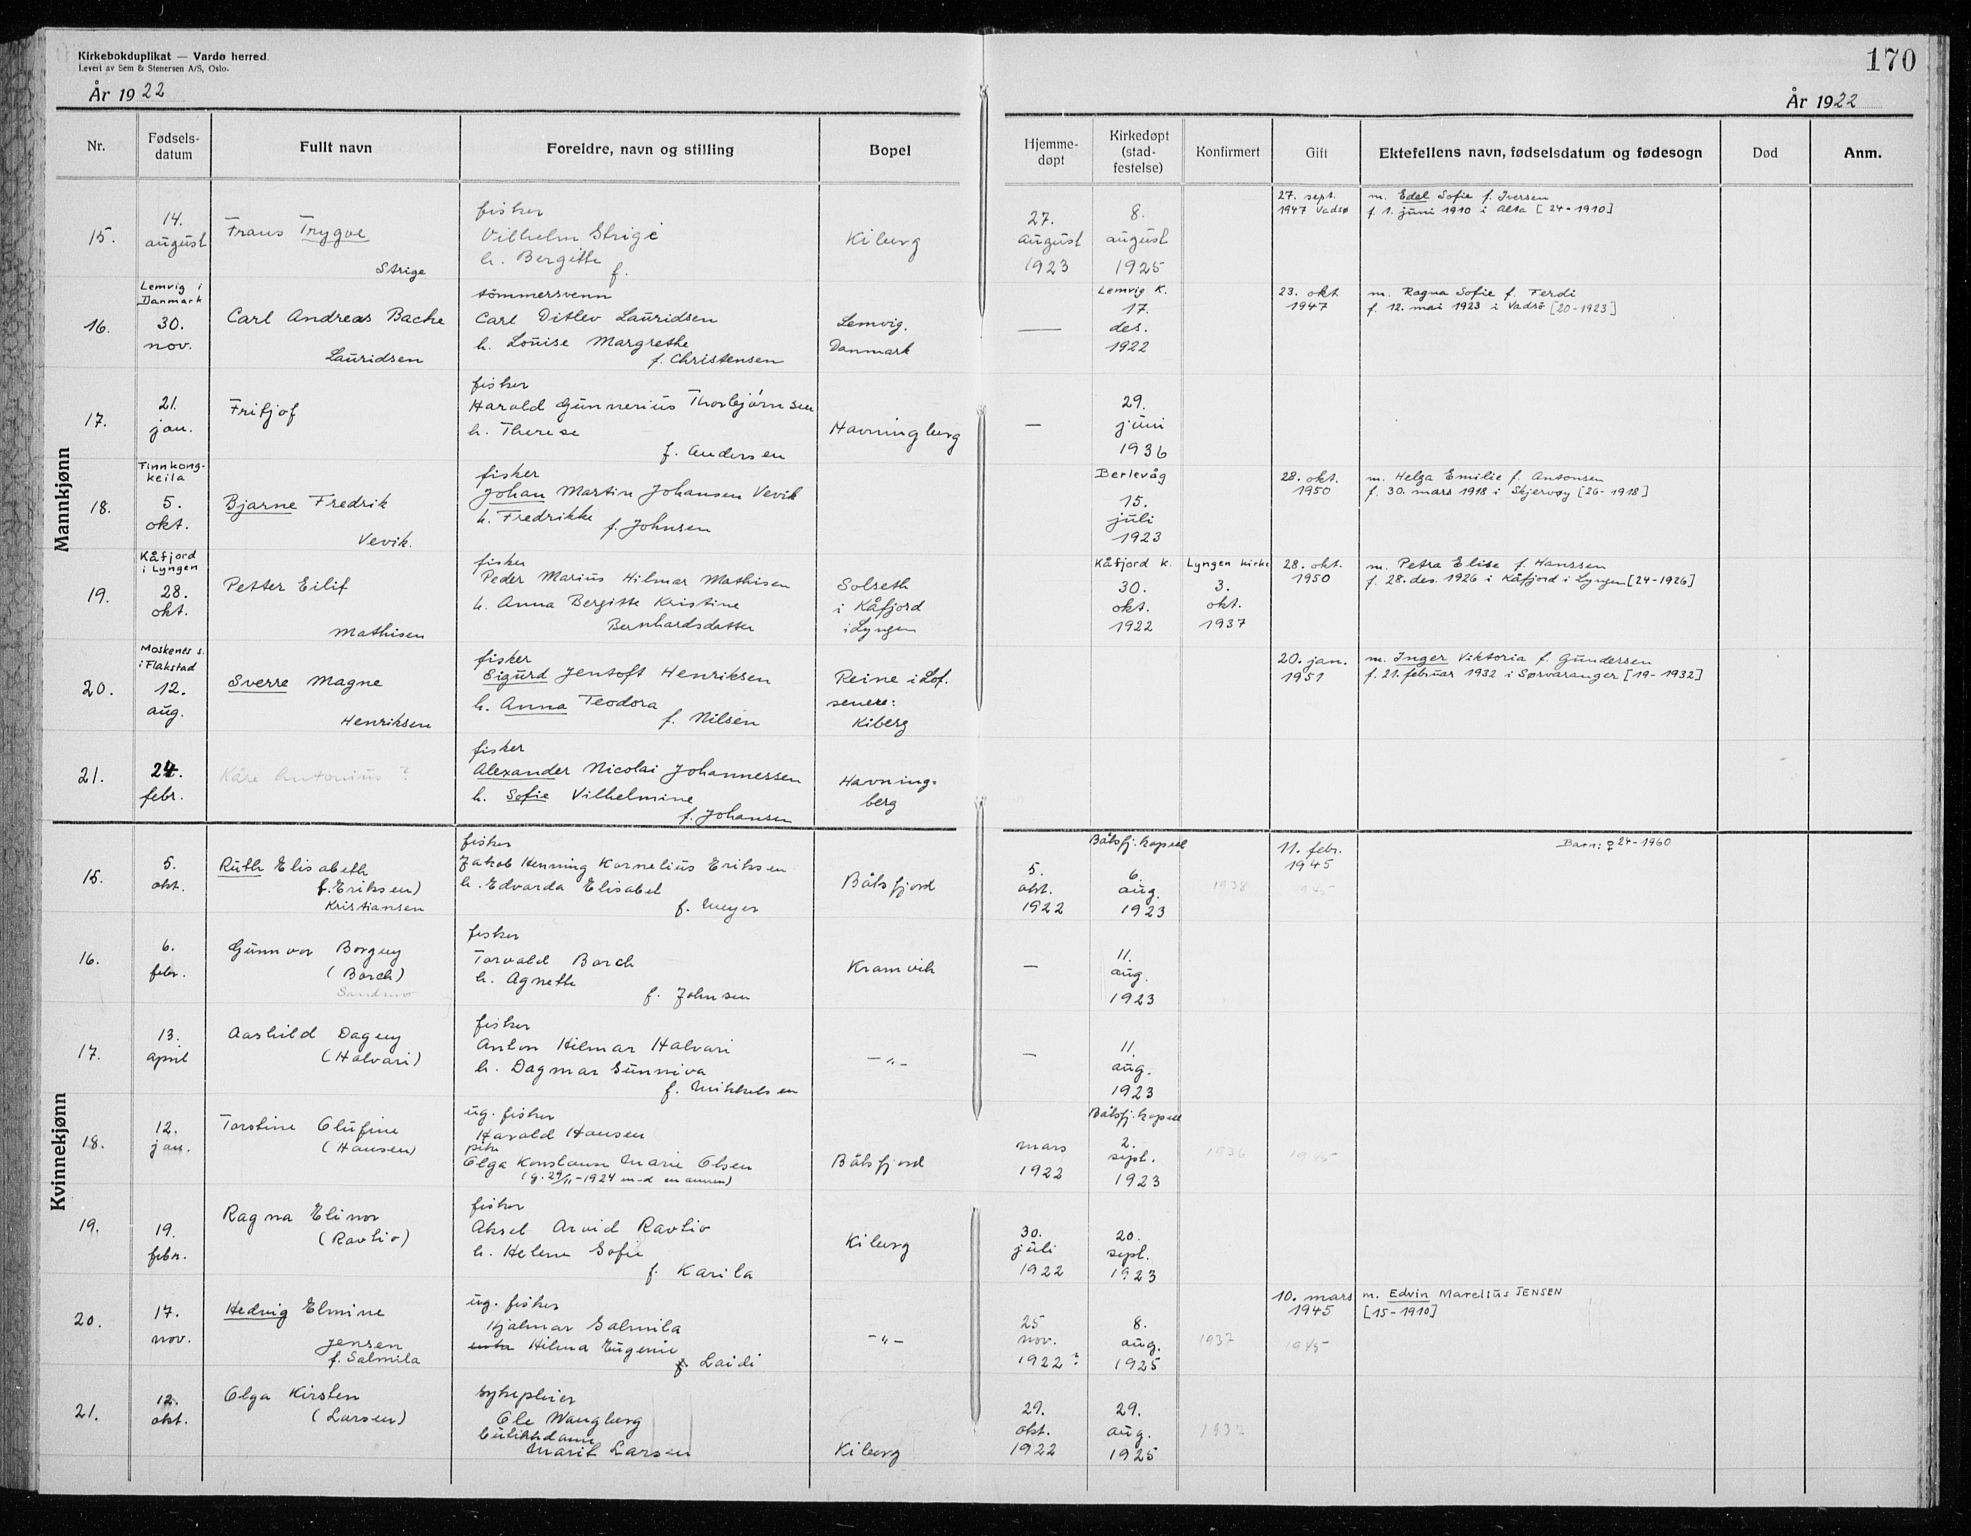 Kirkebokduplikat — Vardø herred.
Levert av Sem & Stenersen A/S, Oslo.
170
År 1922
År 1922
Nr.
Fødsels-
datum
Fullt navn
Foreldre, navn og stilling
Bopel
Hjemme-
døpt
Kirkedøpt
(stad-
festelse)
Konfirmert
Gift
Ektefellens navn, fødselsdatum og fødesogn
Død
Anm.
Mannkjønn
15.
14.
august
Frans Trygve
Strige
fisker
Vilhelm Strige
h. Bergitte
f.
Kiberg
27.
august
1923
8.
august
1925
27. sept.
1947 Vadsø
m. Edel Sofie f. Iversen
f. 1. juni 1910 i Alta [24-1910]
16.
Lemvig i
Danmark
30.
nov.
Carl Andreas Bache
Lauridsen
tömmersvenn
Carl Ditlev Lauridsen
h. Louise Margrethe
f. Christensen
Lemvig.
Danmark
—
Lemvig K.
17.
des.
1922
23. okt.
1947
m. Ragna Sofie f. Ferdi
f. 12. mai 1923 i Vadsö [20-1923]
17.
21.
jan.
Fritjof
fisker
Harald Gunnerius Thorbjørnsen
h. Therese
f. Andersen
Havningberg
—
29.
juni
1936
18.
Finnkong-
keila
5.
okt.
Bjarne Fredrik
Vevik.
fisker
Johan Martin Johansen Vevik
h. Fredrikke
f. Johnsen
Berlevåg
15.
juli
1923
28. okt.
1950
m. Helga Emilie f. Antonsen
f. 30. mars 1918 i Skjervøy [26-1918]
19.
Kåfjord
i Lyngen
28.
okt.
Petter Eilif
Mathisen
fisker
Peder Marius Hilmar Mathisen
h. Anna Bergitte Kristine
Bernhardsdatter
Solseth
i Kåfjord
i Lyngen
Kåfjord k.
30.
okt.
1922
Lyngen kirke
3.
okt.
1937
28. okt.
1950
m. Petra Elise f. Hanssen
f. 28. des. 1926 i Kåfjord i Lyngen [24-1926]
20.
Moskenes s.
i Flakstad
12.
aug.
Sverre Magne
Henriksen
fisker
Sigurd Jentoft Henriksen
h. Anna Teodora
f. Nilsen
Reine i Lof.
senere:
Kiberg
20. jan.
1951
m. Inger Viktoria f. Gundersen
f. 21. februar 1932 i Sørvaranger [19-1932]
21.
24.
febr.
Kåre Antonius ?
fisker
Alexander Nicolai Johannessen
h. Sofie Vilhelmine
f. Johansen
Havning-
berg
Kvinnekjønn
15.
5.
okt.
Ruth Elisabeth
f. Eriksen)
Kristiansen
fisker
Jakob Henning Kornelius Eriksen
h. Edvarda Elisabet
f. Meyer
Båtsfjord
5.
okt.
1922
Båtsfj. kapell
6.
aug.
1923
1938
11. febr.
1945
1945
Barn: ♀ 24-1960
16.
6.
febr.
Gunnvor Borgny
(Borch)
Sandmo
fisker
Torvald Borch
h. Agnethe
f. Johnsen
Kramvik
—
11.
aug.
1923
17.
13.
april
Aashild Dagny
(Halvari)
fisker
Anton Hilmar Halvari
h. Dagmar Gunniva
f. Mikkelsen
— „ —
—
11.
aug.
1923
18.
12.
jan.
Torstine Olufine
(Hansen)
ug. fisker
Harald Hansen
pike
Olga Konstanse Marie Olsen
(g. 29/11-1924 m-d en annen)
Båtsfjord
mars
1922
Båtsfj. kapell
2.
sept.
1923
1936
1945
19.
19.
febr.
Ragna Elinor
(Ravtio)
fisker
Aksel Arvid Ravtio
h. Helene Sofie
f. Karila
Kiberg
30.
juli
1922
20.
sept.
1923
20.
17.
nov.
Hedvig Elmine
Jensen
f. Salmila
ug. fisker
Hjalmar Salmila
Hilma Eugenie
f. Laidi
— „ —
25
nov.
1922 ?
8.
aug.
1925
1937
10. mars
1945
1945
m. Edvin Marelius JENSEN
[15-1910]
21.
12.
okt.
Olga Kirsten
(Larsen)
sykepleier
Ole Wangberg
Marit Larsen
Kiberg
29.
okt.
1922
29.
aug.
1925
1937